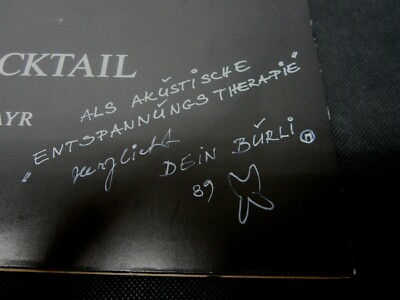 CKTAIL
AYR
ALS AKŬSTISCHE
„ENTSPANNŬNGSTHERAPIE"
herzlichst
DEIN BŬRLI
89